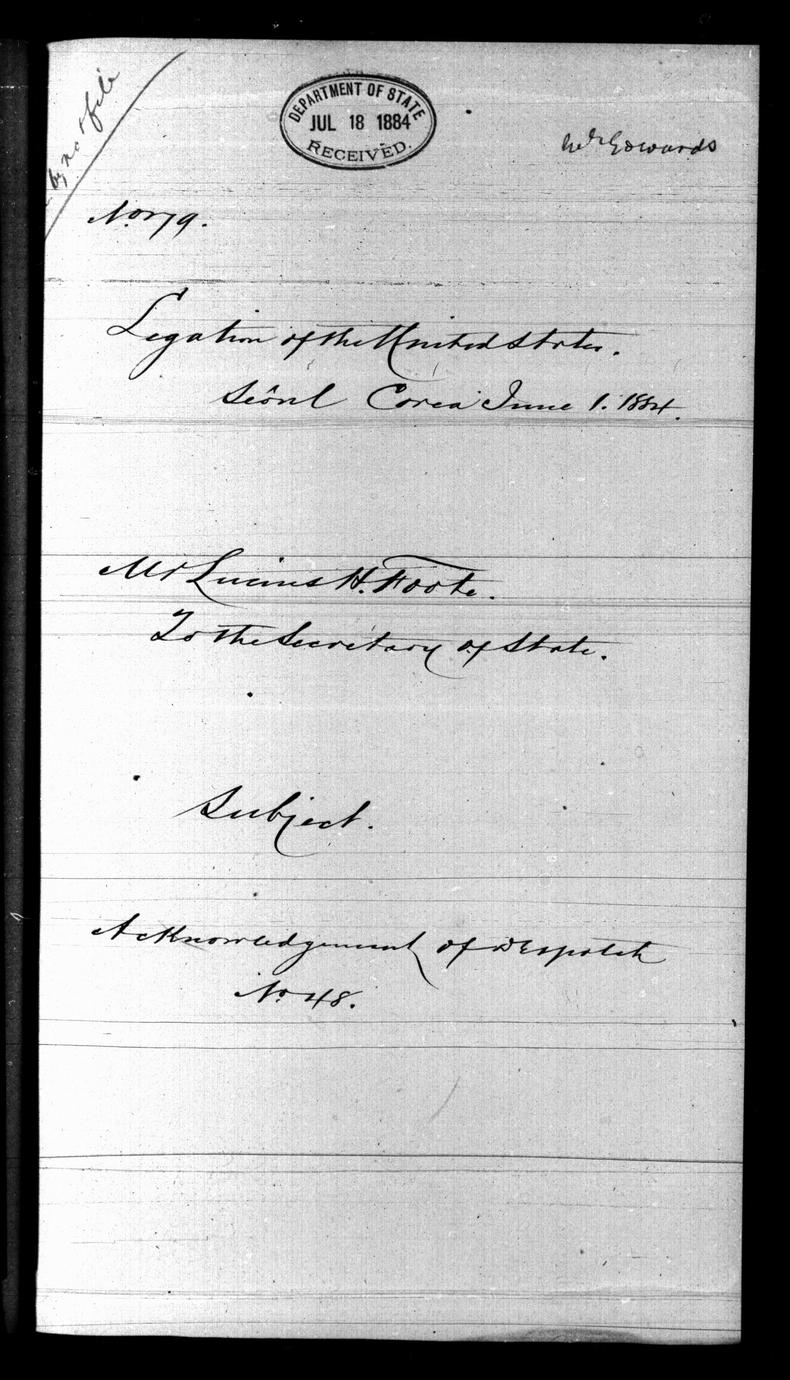 by no file
DEPARTMENT OF STATE
JUL 18 1884
RECEIVED.
Mr Edwards
No 79.
Legation of the United States.
Seoul Corea June 1. 1884.
Mr Lucius H. Foote.
To the Secretary of State.
Subject.
Acknowledgement of Despatch
No 48.